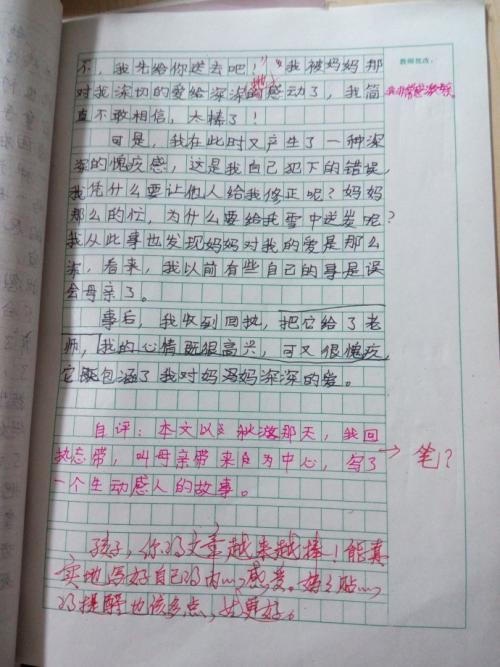 教师批改：
不，我先给你送去吧！”我被妈妈那
对我深切的爱给深深的感动了，我简
地
直不敢相信，太棒了！
可是，我在此时又产生了一种深
深的愧疚感，这是我自己犯下的错误，
我凭什么要让他人给我修正呢？妈妈
那么的忙，为什么要给我雪中送炭呢？
我从此事也发现妈妈对我的爱是那么
深，看来，我以前有些自己的事是误
会母亲了。
事后，我收到回执，把它给了老
师，我的心情既很高兴，可又很愧疚，
它既包涵了我对妈妈妈深深的爱。
自评：本文以 秋游那天，我回
执忘带，叫母亲带来 为中心，写了
一个生动感人的故事。
笔？
孩子，你的文章越来越棒！能真
实地写好自己的内心感受。妈妈贴心
的提醒也该多点，就更好。